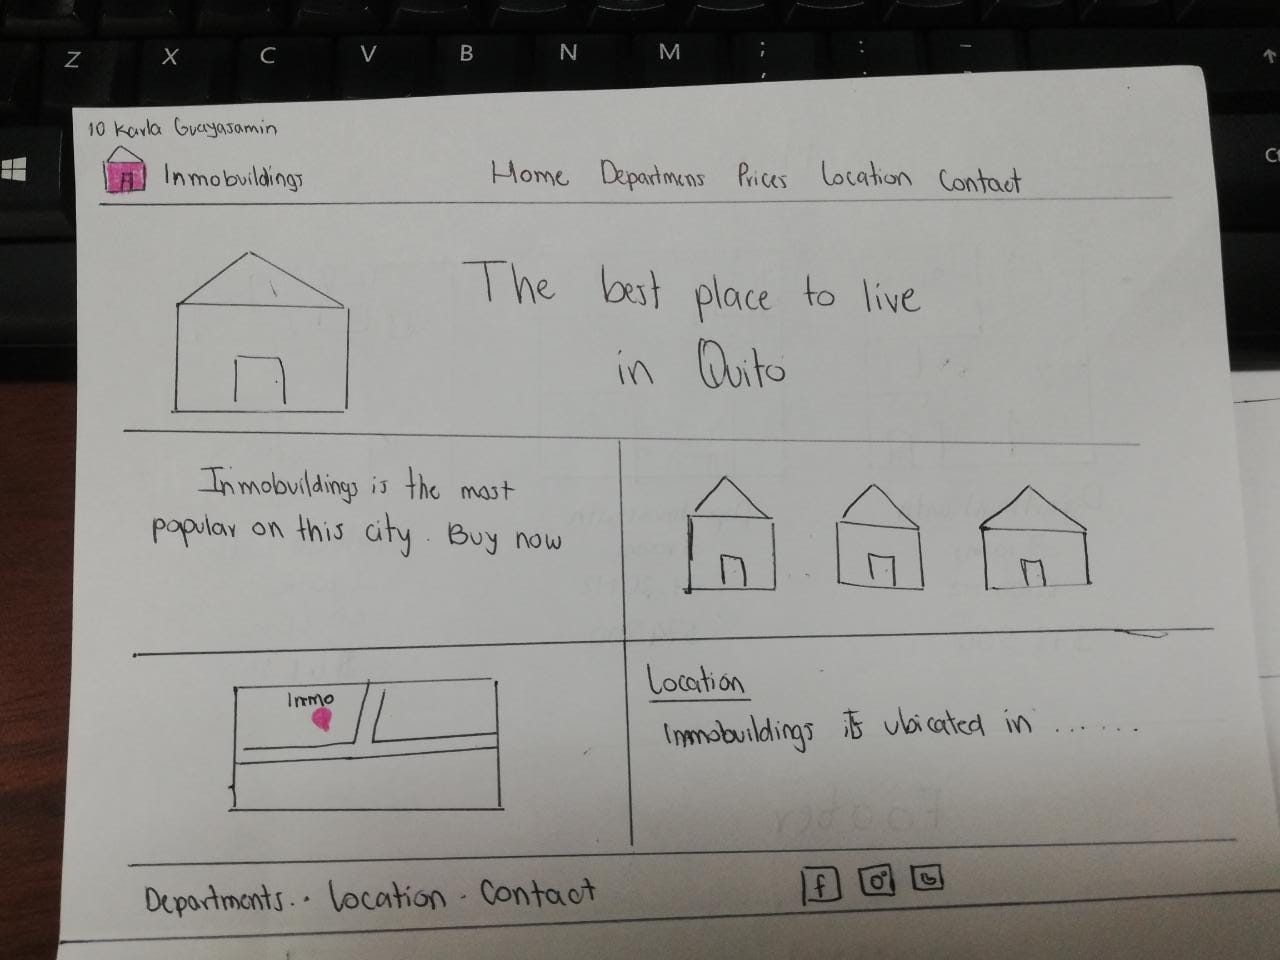 Z X C V B N M ; : _
, . -
10 Karla Guayasamin
Inmobuildings Home Departmens Prices Location Contact
The best place to live
in Quito
Inmobuildings is the most
popular on this city. Buy now
Inmo
Location
Inmobuildings is ubicated in ......
Departments.. Location . Contact
f